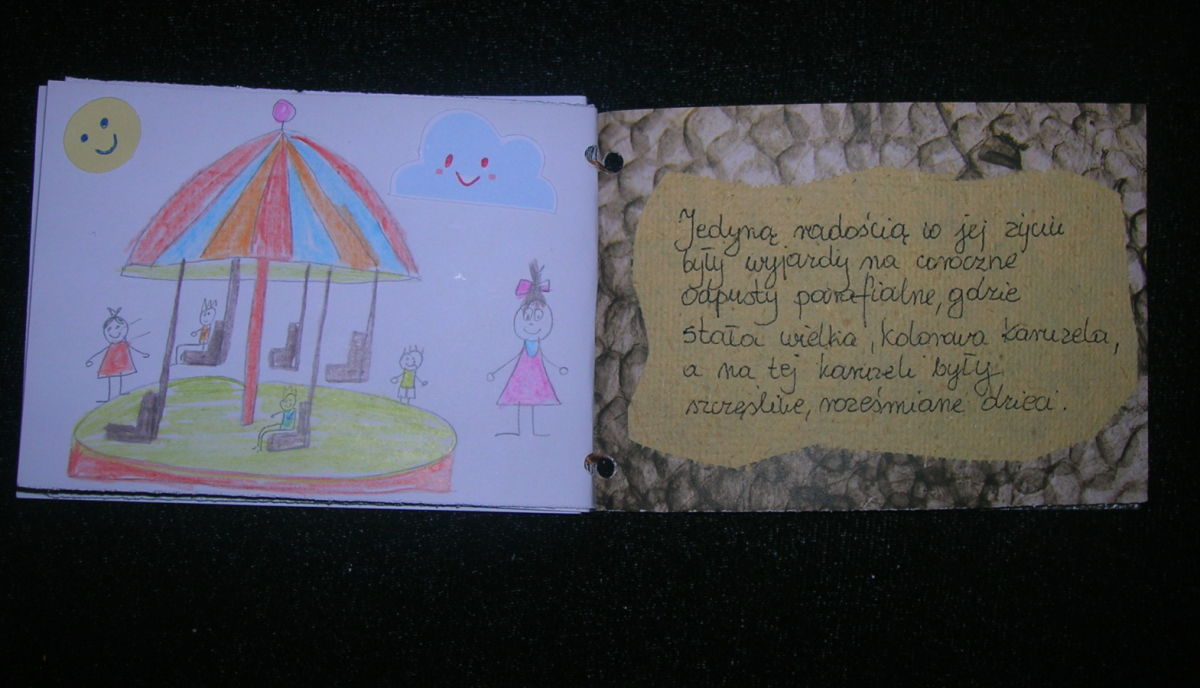 Jedyną radością w jej życiu
były wyjazdy na coroczne
odpusty parafialne, gdzie
stała wielka, kolorowa karuzela,
a na tej karuzeli były
szczęśliwe, roześmiane dzieci.